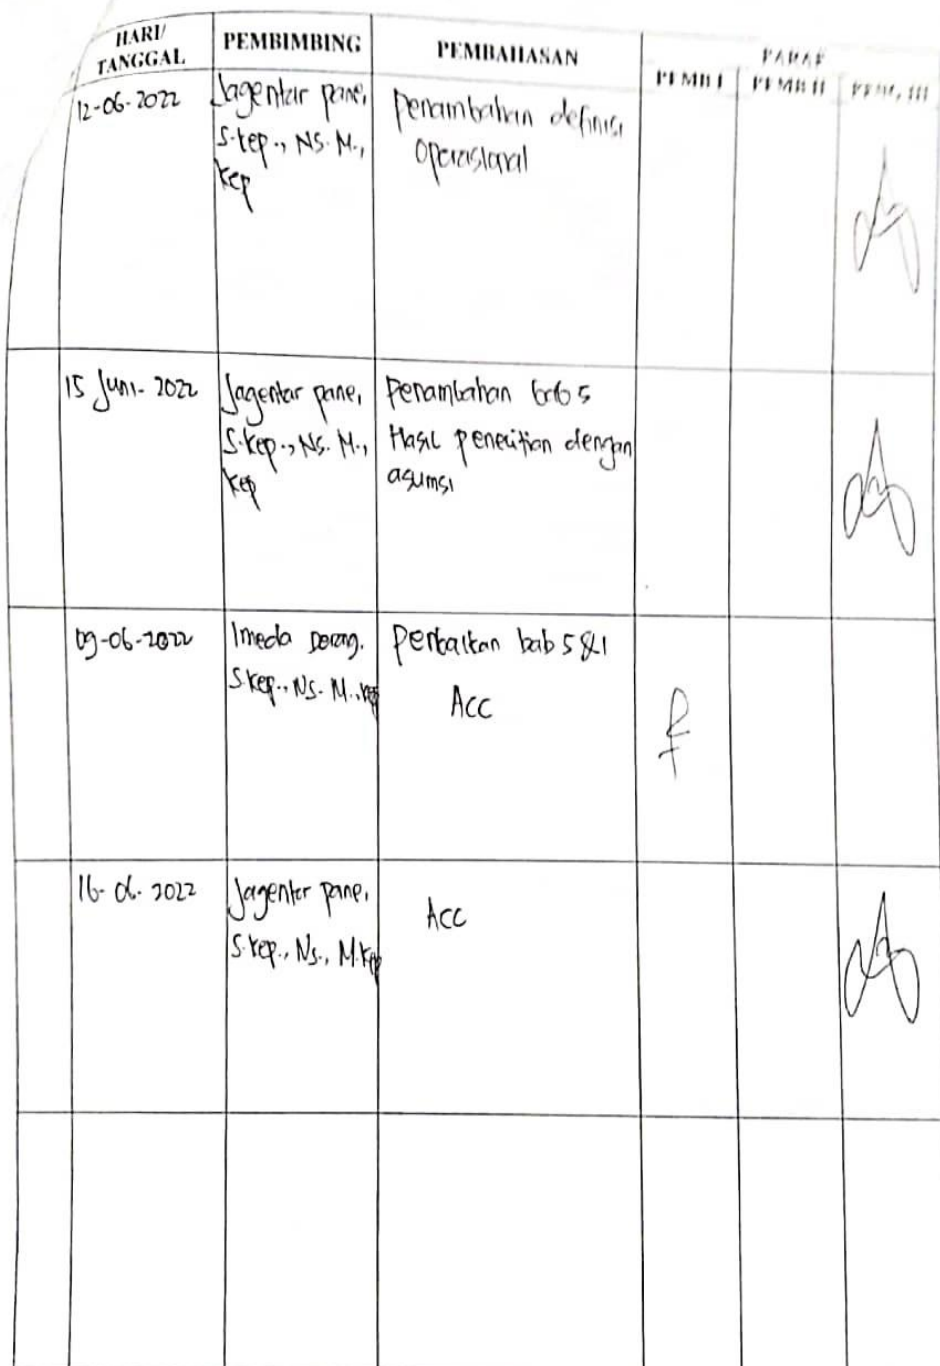 HARI/
TANGGAL
PEMBIMBING
PEMBAHASAN
PARAF
PEMB I
PEMB II
PENG. III
12-06-2022
Jagentar pane,
S.kep., NS. M.,
kep
Penambahan definisi
Operasional
15 Juni- 2022
Jagentar pane,
S.kep., Ns. M.,
kep
Penambahan bab 5
Hasil penelitian dengan
asumsi
09-06-2022
Imeda Derang.
S.kep., NS. M., kep
Perbaikan bab 5 &1
Acc
16-06-2022
Jagentar pane,
S.kep., Ns., M.kep
Acc